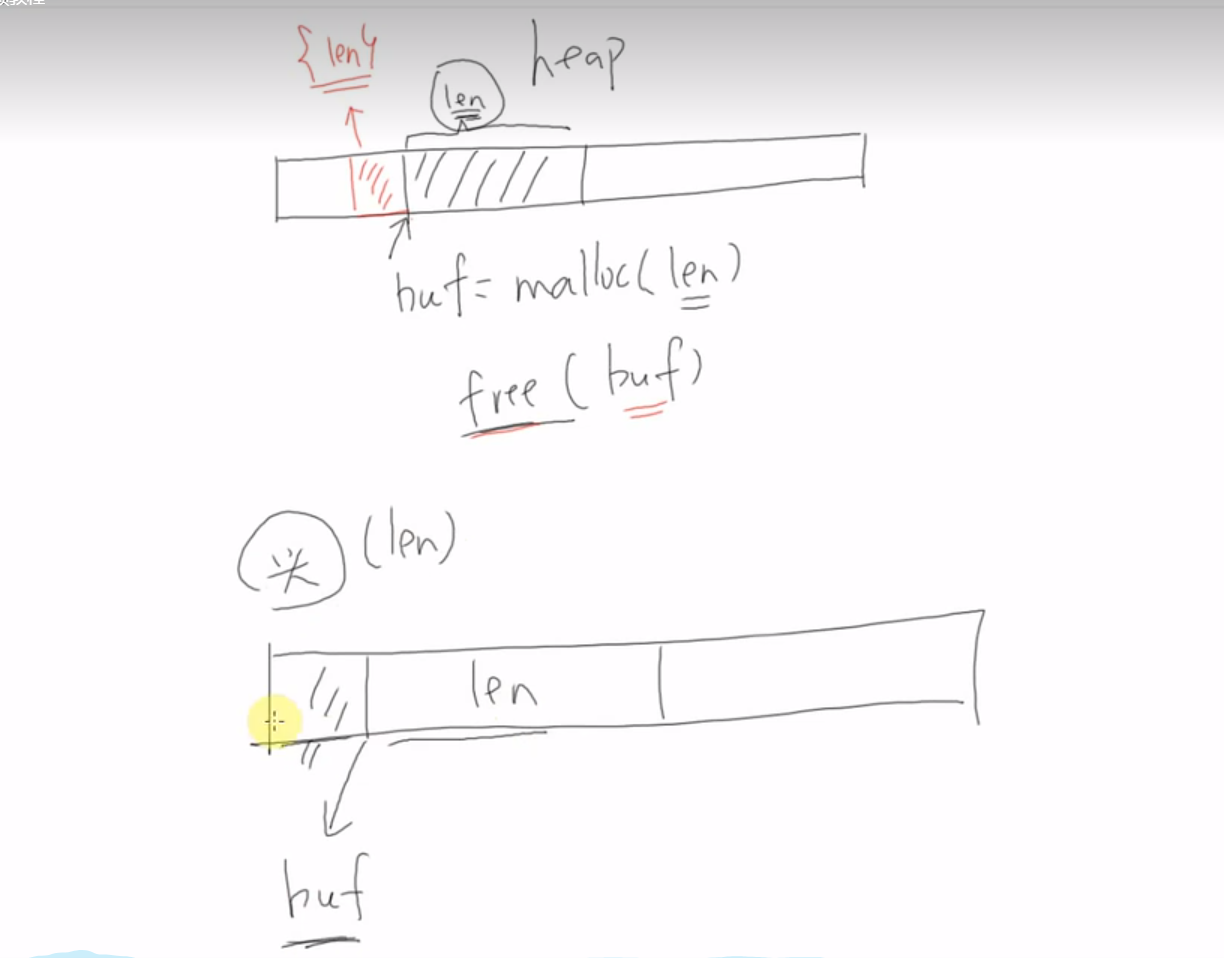 {len}
heap
len
buf = malloc(len)
free(buf)
(len)
len
buf